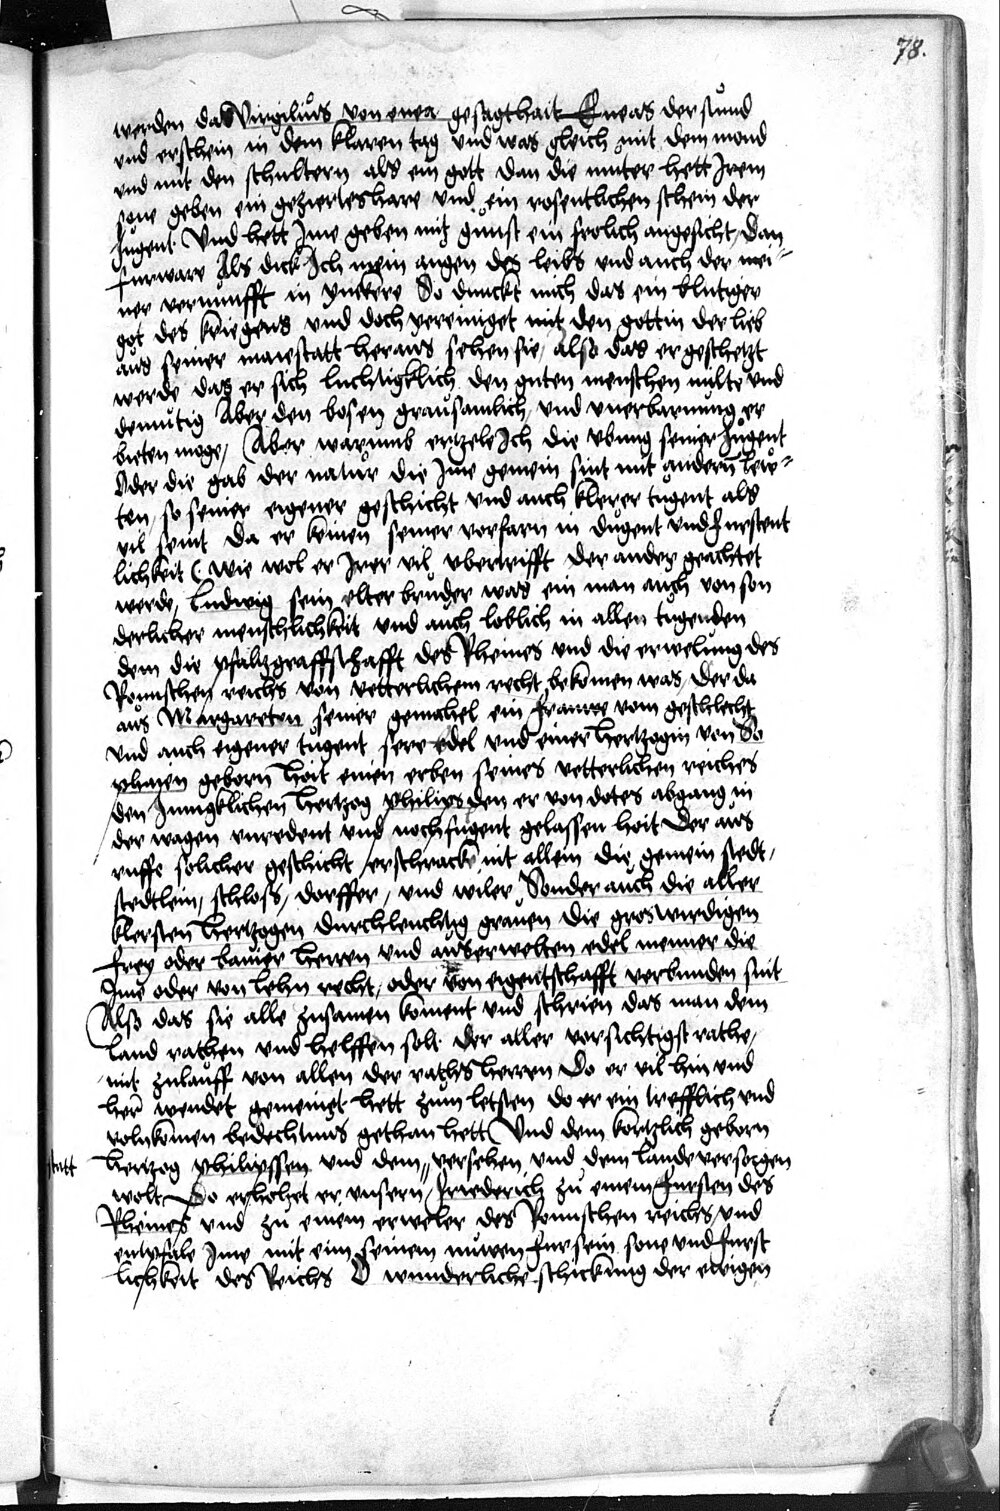 78.
werden das Virgilius von enea gesagt hait Eneas der stund
und erschein in dem klaren tag und was gleich mit dem mond
und mit den schultern als ein gott dan die muter hett Irem
sone geben ein geziertes hare und ein rosentlichen schein der
Jugent Und hett Ime geben mit gunst ein frolich angesicht / Dan
furware Als dick Ich mein augen des leibs und auch der mei-
ner vernunfft in ynkere So dunckt mich das ein blutiger
got des kriegens und doch vereiniget mit den gottin der lieb
aus seiner maiestatt heraus sehen sie / also das er geschetzt
werde das er sich luchtigklich den guten menschen milte und
demutig Aber den bosen grausamlich und unerbarmung er
bieten moge / Aber warumb ertzele Ich die ubung seiner Jugent
Oder die gab der natur die Ime gemein sint mit andern lew-
ten / so seiner eigener geschicht und auch klerer tugent als
vil seint Da er keinen seiner vorfarn in dugent und Furstent
lichkeit ( wie wol er Irer vil ubertrifft der ander geachtet
werde / Ludwig sein elter bruder was ein man auch von son
derlicher menschlichkeit und auch loblich in allen tugenden
dem die pfaltzgraffschafft des Rheines und die erwelung des
Romischen reichs von vetterlichem recht bekomen was / der da
aus Margareten seiner gemahel ein frauwe vom geschlecht
und auch eigener tugent sere edel und einer hertzogin von So
phaien geborn hait einen erben seines vetterlichen reiches
den Innigklichen hertzog philips den er von dotes abgang in
der wagen unredent und noch sugent gelassen hoit Der aus
ruffe solicher geschicht / erschrack nit allein die gemein stedt /
stedtlein / schloss / dorffer / und wiler Sonder auch die aller
klersten hertzogen durchleuchtig graven Die groswirdigen
frey oder baner herren und auserwelten edel menner die
Ime oder von lehn recht / oder von eigentschafft verbunden sint
Also das sie alle zusamen koment und schrien das man dem
land rathen und helffen solt Der aller vorsichtigst rathe /
mit zulauff von allen der raths herren Do er vil hin und
her wendet gemeinet hett zum letsten do er ein trefflich und
volnkomen bedechtnus gethan hett Und dem kortzlich geborn
statt
hertzog philipssen und dem " versehen und dem lande versorgen
wolt Do erhohet er unsern Friederich zu einem Fursten des
Rheines und zu einem erweler des Romischen reichs / und
entpfale Ime mit eim seinem nuwen fur sein sone und furst
lichkeit des Reichs O wunderliche schickung der ewigen